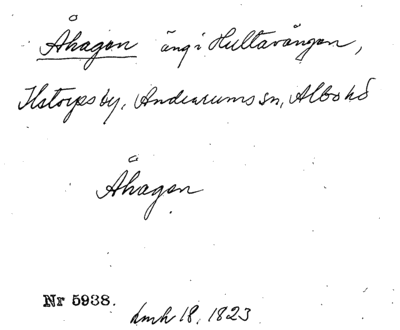 Åhagen äng i Hultavången,
Ilstorps by, Andrarums sn, Albo hd
Åhagen
Nr 5938.
lmh 18, 1823